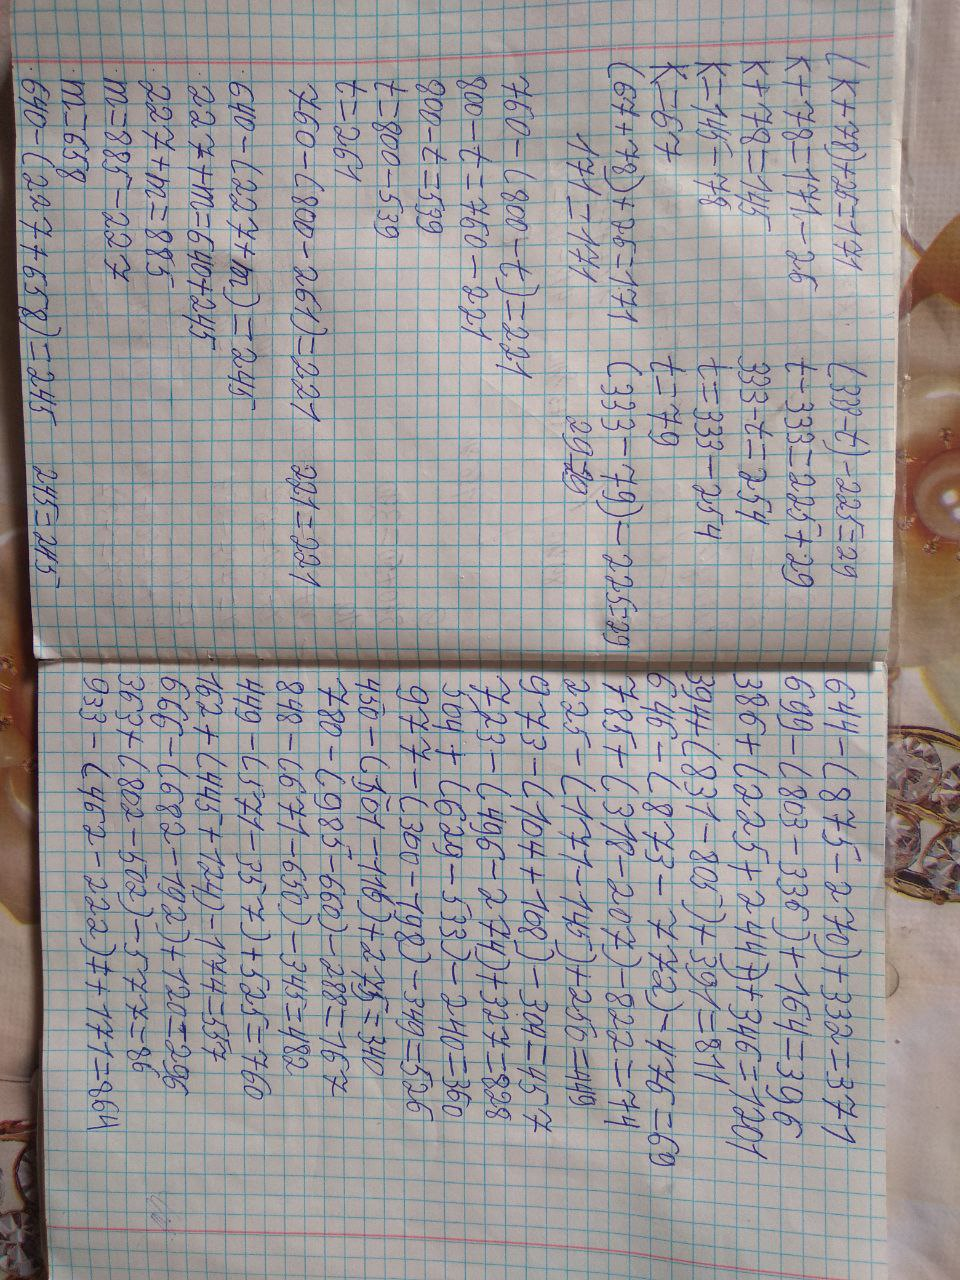 (k+78)+26=171 (333-t)-225=29
k+78=171-26 t-333=225+29
k+78=145 333-t=254
k=145-78 t=333-254
k=67 t=79
(67+78)+26=171 (333-79)-225=29
171=171 29=29
760-(800-t)=221
800-t=760-221
800-t=539
t=800-539
t=261
760-(800-261)=221 221=221
640-(227+m)=245
227+m=640+245
227+m=885
m=885-227
m=658
640-(227+658)=245 245=245
644-(875-270)+332=371
699-(803-336)+164=396
386+(225+244)+346=1201
394+(831-805)+391=811
646-(873-772)-476=69
785+(318-207)-822=74
225-(171-145)+256=449
973-(104+108)-304=457
723-(496-274)+327=828
504+(629-533)-240=360
977-(300-198)-349=526
450-(501-116)+275=340
780-(985-660)-288=167
848-(671-650)-345=482
449-(571-357)+525=760
162+(445+124)-174=557
666-(682-192)+120=296
363+(802-502)-577=86
933-(462-222)++171=864